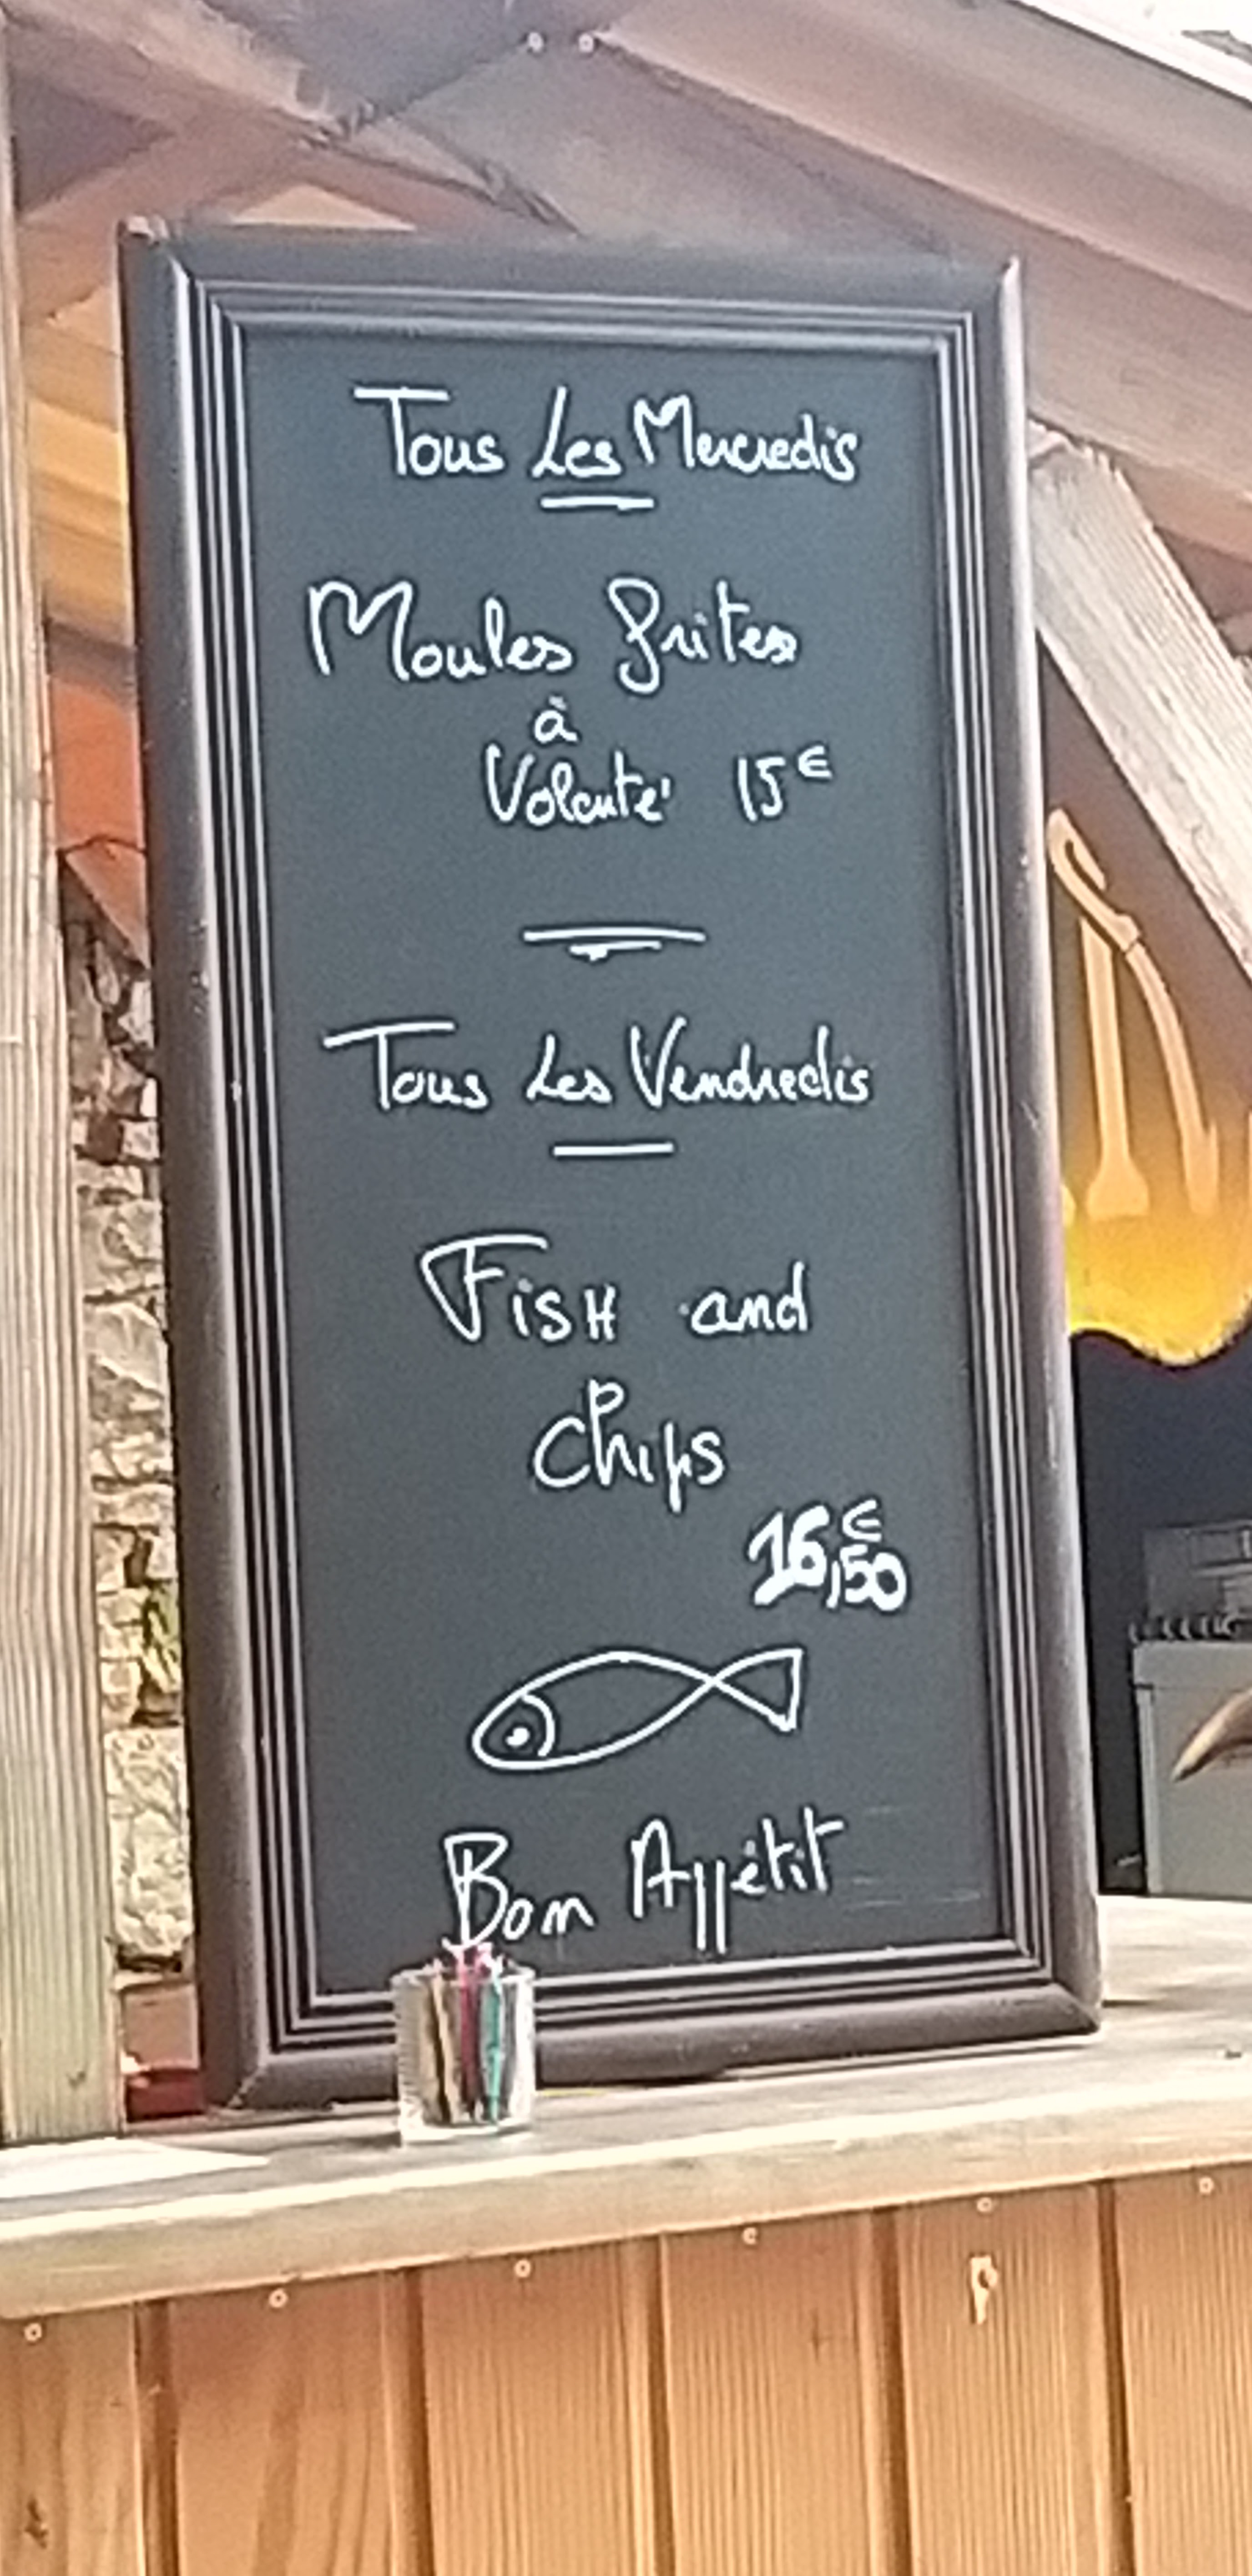 Tous Les Mercredis
Moules frites
à
Volonté 15€
Tous Les Vendredis
FisH and
Chips
16,50€
Bon Appétit